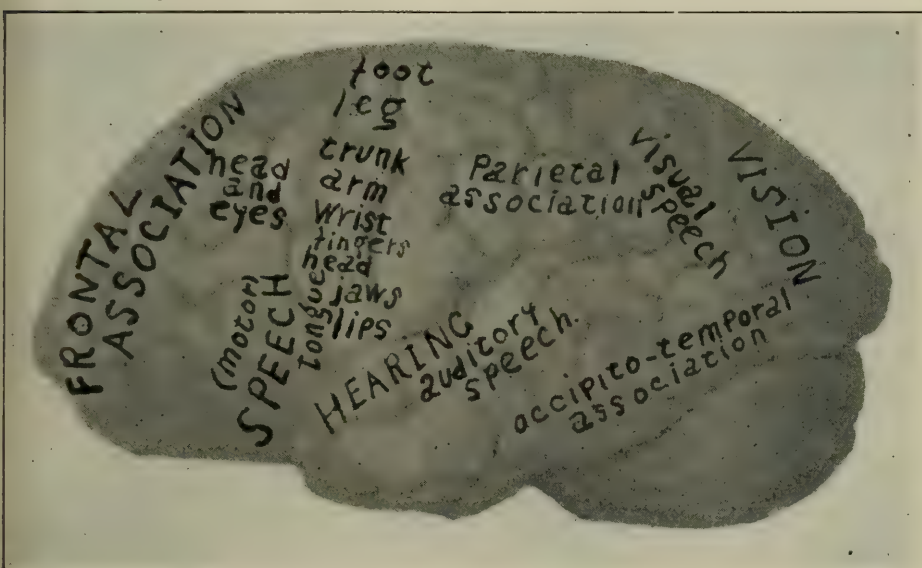 FRONTAL
ASSOCIATION
head
and
eyes
(motor)
SPEECH
foot
leg
trunk
arm
wrist
fingers
head
tongue
jaws
lips
Parietal
association
visual
speech
VISION
HEARING
auditory
speech.
occipito-temporal
association